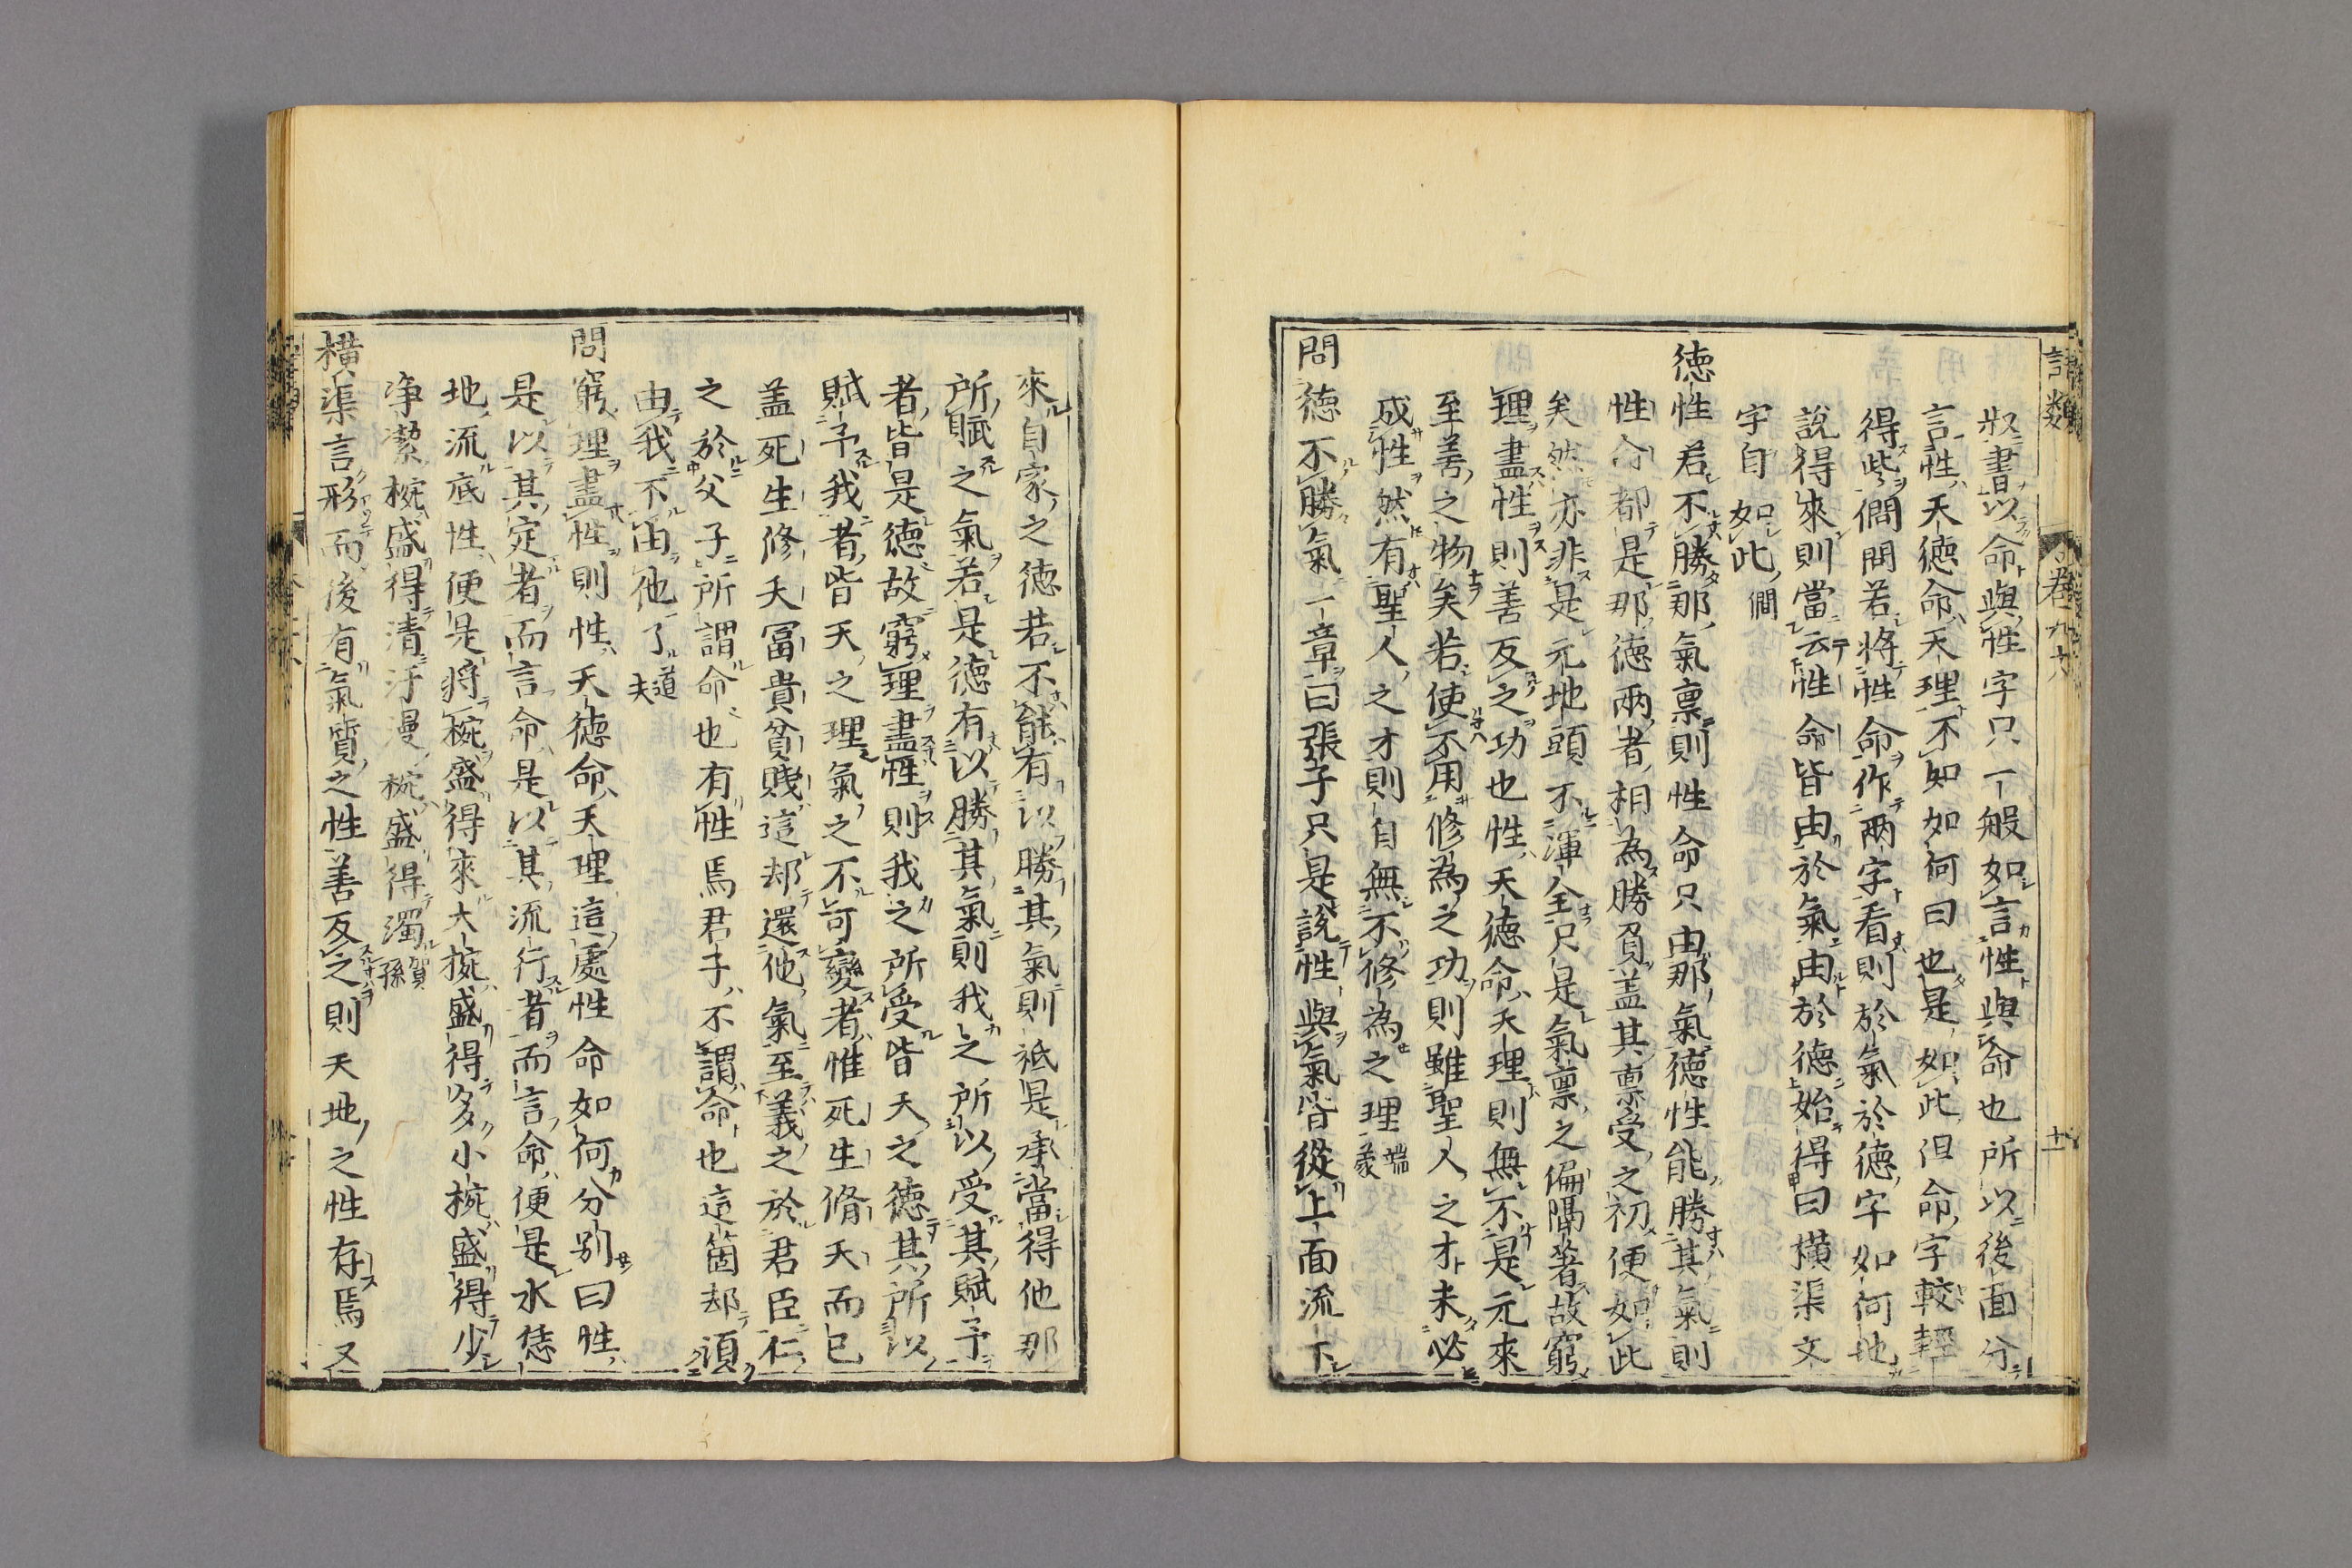 語類
卷九十八
十一
釈書以命與性字只一般如言性與命也所以後面分
言性天德命天理不知如何曰也是如此但命字較輕
得些僩問若將性命作兩字看則於氣於德字如何地
說得來則當云性命皆由於氣由於德始得曰橫渠文
字自如此僩
德性若不勝那氣稟則性命只由那氣德性能勝其氣則
性命都是那德兩者相為勝負盖其稟受之初便如此
矣然亦非是元地頭不渾全只是氣稟之偏隔著故窮
理盡性則善反之功也性天德命天理則無不是元來
至善之物矣若使不用修為之功則雖聖人之才未必
成性然有聖人之才則自無不修為之理端蒙
問德不勝氣一章曰張子只是說性與氣皆從上面流下
來自家之德若不能有以勝其氣則祗是承當得他那
所賦之氣若是德有以勝其氣則我之所以受其賦予
者皆是德故窮理盡性則我之所受皆天之德其所以
賦予我者皆天之理氣之不可變者惟死生脩夭而已
盖死生修夭冨貴貧賤這却還他氣至義之於君臣仁
之於父子所謂命也有性焉君子不謂命也這箇却須
由我不由他了道夫
問窮理盡性則性天德命天理這處性命如何分別曰性
是以其定者而言命是以其流行者而言命便是水恁
地流底性便是將椀盛得來大椀盛得多小椀盛得少
净潔椀盛得清汙漫椀盛得濁賀孫
橫渠言形而後有氣質之性善反之則天地之性存焉又